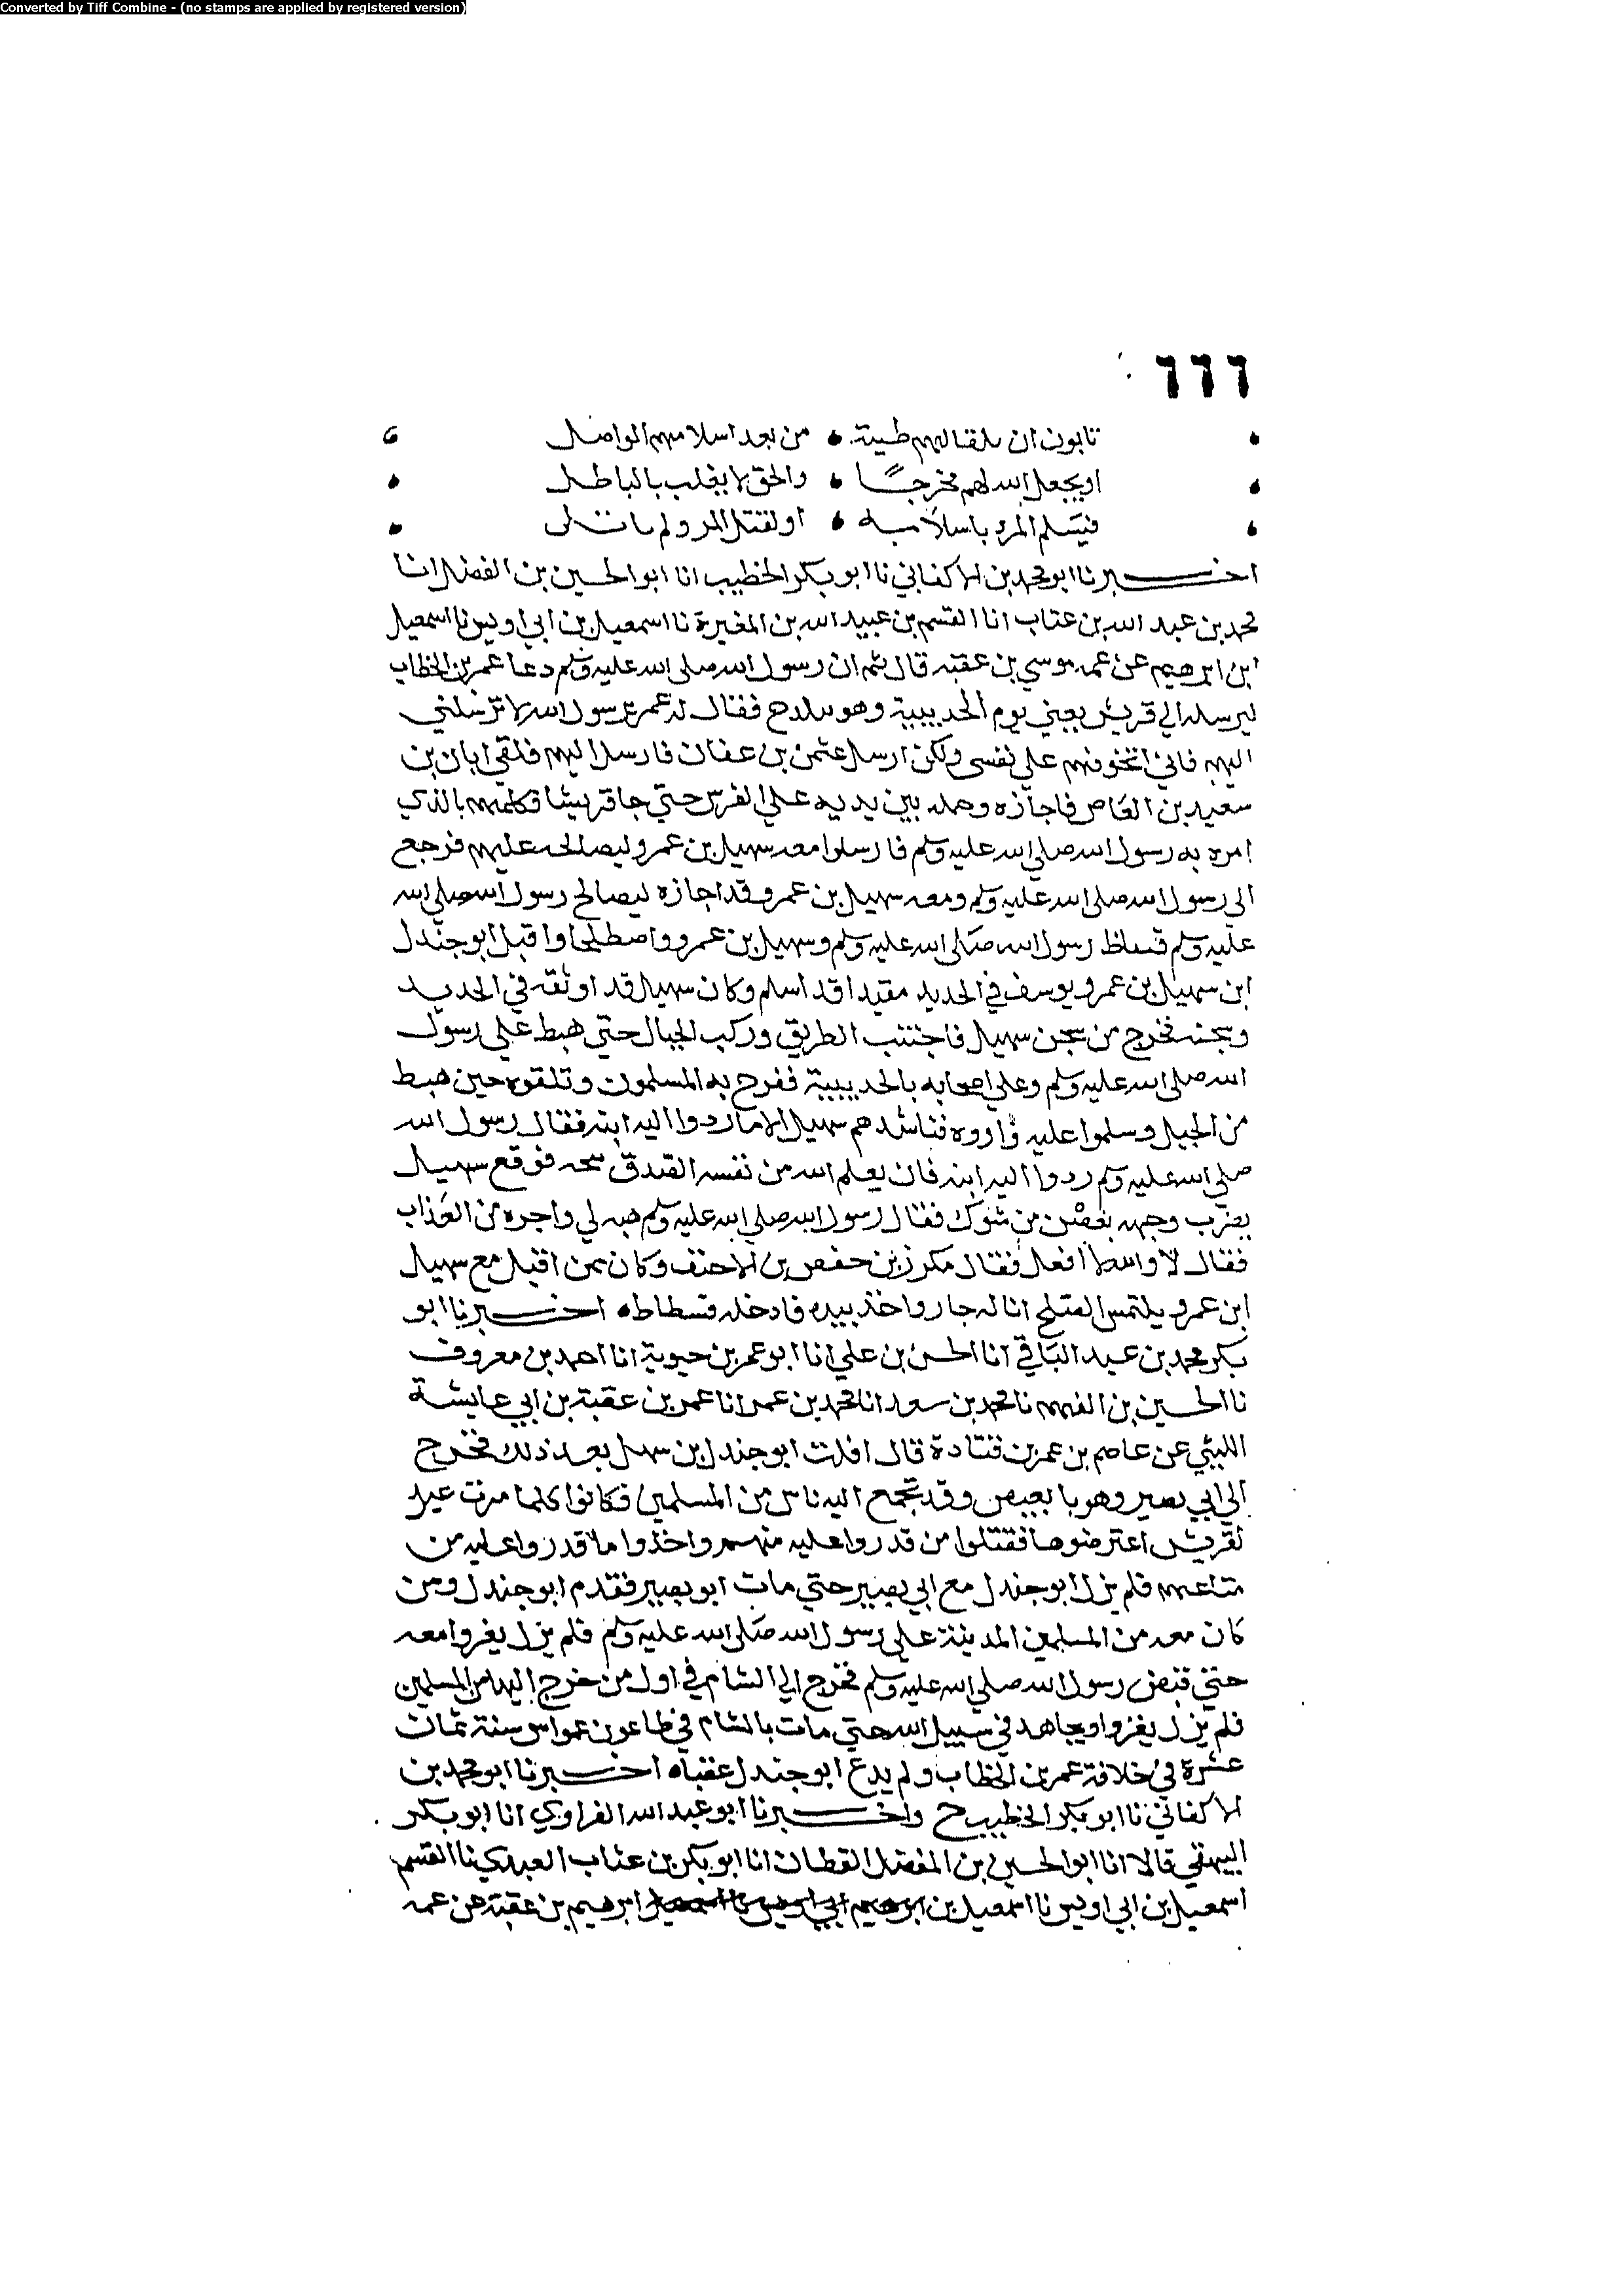 Converted by Tiff Combine - (no stamps are applied by registered version)
٦٦٦
تابون ان تلقا لهم طيبة • من بعد اسلامهم الواصل
او يجعل الله لهم مخرجًا • والحق لا يغلب بالباطل
فيسلم المرء باسلامه • او لقتل المرء ولم ياتلى
اخبرنا ابو محمد بن الاكفاني نا ابو بكر الخطيب انا ابو الحسين بن الفضل انا
محمد بن عبد الله بن عتاب انا القسم بن عبيد الله بن المغيرة نا اسمعيل بن ابي اويس نا اسمعيل
ابن ابرهيم عن عمه موسي بن عقبه قال ثم ان رسول الله صلى الله عليه وسلم دعا عمر بن الخطاب
ليرسله الي قريش يعني يوم الحديبية وهو ببلدح فقال له عمر يرسول الله لا ترسلني
اليهم فاني اتخوفهم علي نفسي ولكن ارسل عثمن بن عفان فارسل اليهم فلقي ابان بن
سعيد بن العاص فاجازه وحمله بين يديه علي الفرس حتي جا قريشا فكلمهم بالذي
امره به رسول الله صلي الله عليه وسلم فارسلوا معه سهيل بن عمرو ليصالحه عليهم فرجع
الى رسول الله صلى الله عليه وسلم ومعه سهيل بن عمرو قد اجازه ليصالح رسول الله صلى الله
عليه وسلم رسول الله صلى الله عليه وسلم وسهيل بن عمرو واصطلحا واقبل ابو جندل
ابن سهيل بن عمرو يوسف في الحديد مقيدا قد اسلم وكان سهيل قد اوثقه في الحديد
وسجنه فخرج من سجن سهيل فاجتنب الطريق وركب الجبال حتي هبط علي رسول
الله صلى الله عليه وسلم وعلي اصحابه بالحديبية ففرح به المسلمون وتلقوه حين هبط
من الجبل وسلموا عليه واروه فناشدهم سهيل الا ما ردوا اليه ابنه فقال رسول الله
صلي الله عليه وسلم ردوا اليه ابنه فان يعلم الله من نفسه الصدق ينجه فوقع سهيل
يضرب وجهه بغصن من شوك فقال رسول الله صلي الله عليه وسلم هبه لي واجره من العذاب
فقال لا والله لا افعل فقال مكرز بن حفص بن الاحنف وكان ممن اقبل مع سهيل
ابن عمرو يلتمس الصلح انا له جار واخذ بيده فادخله فسطاطه اخبرنا ابو
بكر محمد بن عبد الباقي انا الحسن بن علي انا ابو عمر بن حيوية انا احمد بن معروف
نا الحسين بن الفهم نا محمد بن سعد انا محمد بن عمر انا عمر بن عقبة بن ابي عايشة
الليثي عن عاصم بن عمر بن قتادة قال افلت ابو جندل بن سهيل بعد ذلك فخرج
الي ابي بصير وهو بالعيص وقد تجمع اليه ناس من المسلمين فكانوا كلما مرت عير
لقريش اعترضوها فقتلوا من قدروا عليه منهم واخذوا ما قدروا عليه من
متاعهم فلم يزل ابو جندل مع ابي بصير حتي مات ابو بصير فقدم ابو جندل ومن
كان معه من المسلمين المدينة علي رسول الله صلى الله عليه وسلم فلم يزل يغزوا معه
حتي قبض رسول الله صلي الله عليه وسلم فخرج الي الشام في اول من خرج اليها من المسلمين
فلم يزل يغزوا ويجاهد في سبيل الله حتي مات بالشام في طاعون عمواس سنة ثمان
عشرة في خلافة عمر بن الخطاب ولم يدع ابو جندل عقبا اخبرنا ابو محمد بن
الاكفاني نا ابو بكر الخطيب ح واخبرنا ابو عبد الله الفراوي انا ابو بكر
البيهقي قالا انا ابو الحسين بن الفضل القطان انا ابو بكر بن عتاب العبدي نا القسم
اسمعيل بن ابي اويس نا اسمعيل بن ابرهيم بن عقبة عن عمه